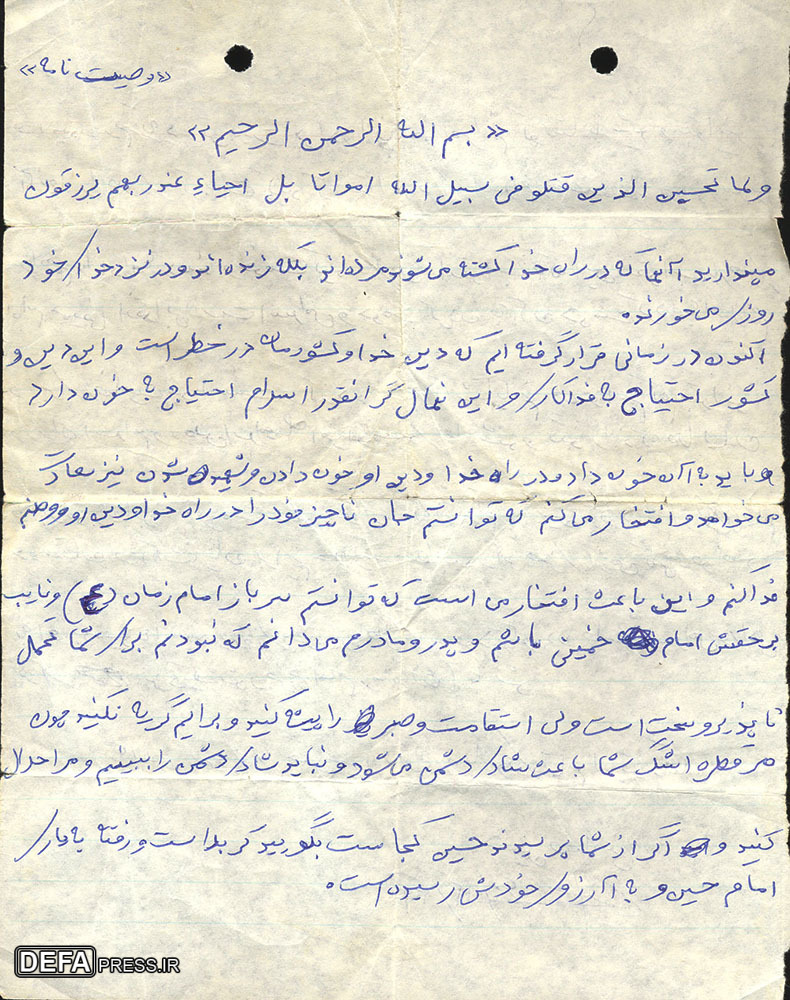 «وصیت نامه»
«بسم الله الرحمن الرحیم»
ولما تحسبن الذین قتلو فی سبیل الله امواتا بل احیاءِ عندربهم یرزقون
مپندارید آنها که در راه خدا کشته می شوند مرده اند بلکه زنده اند و در نزد خدای خود
روزی می خورند.
اکنون در زمانی قرار گرفته ایم که دین خدا و کشورمان در خطر است و این دین و
کشور احتیاج به فداکاری و این نهال گرانقدر اسلام احتیاج به خون دارد
و باید به آن خون داد و در راه خدا و دین او خون دادن و شهید شدن نیز سعادت
می خواهد و افتخار می کنم که توانستم جان ناچیز خود را در راه خدا و دین او و وطنم
فدا کنم و این باعث افتخار می است که توانستم سرباز امام زمان (عج) و نایب
برحقش امام خمینی باشم و پدر و مادرم می دانم که نبودنم برای شما تحمل
ناپذیر و سخت است ولی استقامت و صبر را پیشه کنید و برایم گریه نکنید چون
هر قطره اشک شما باعث شادی دشمن می شود و نباید شادی دشمن را ببینیم و مرا حلال
کنید و اگر از شما پرسیدند حسین کجاست بگویید کربلا است و رفته به یاری
امام حسین و به آرزوی خودش رسیده است.
DEFAPRESS.IR